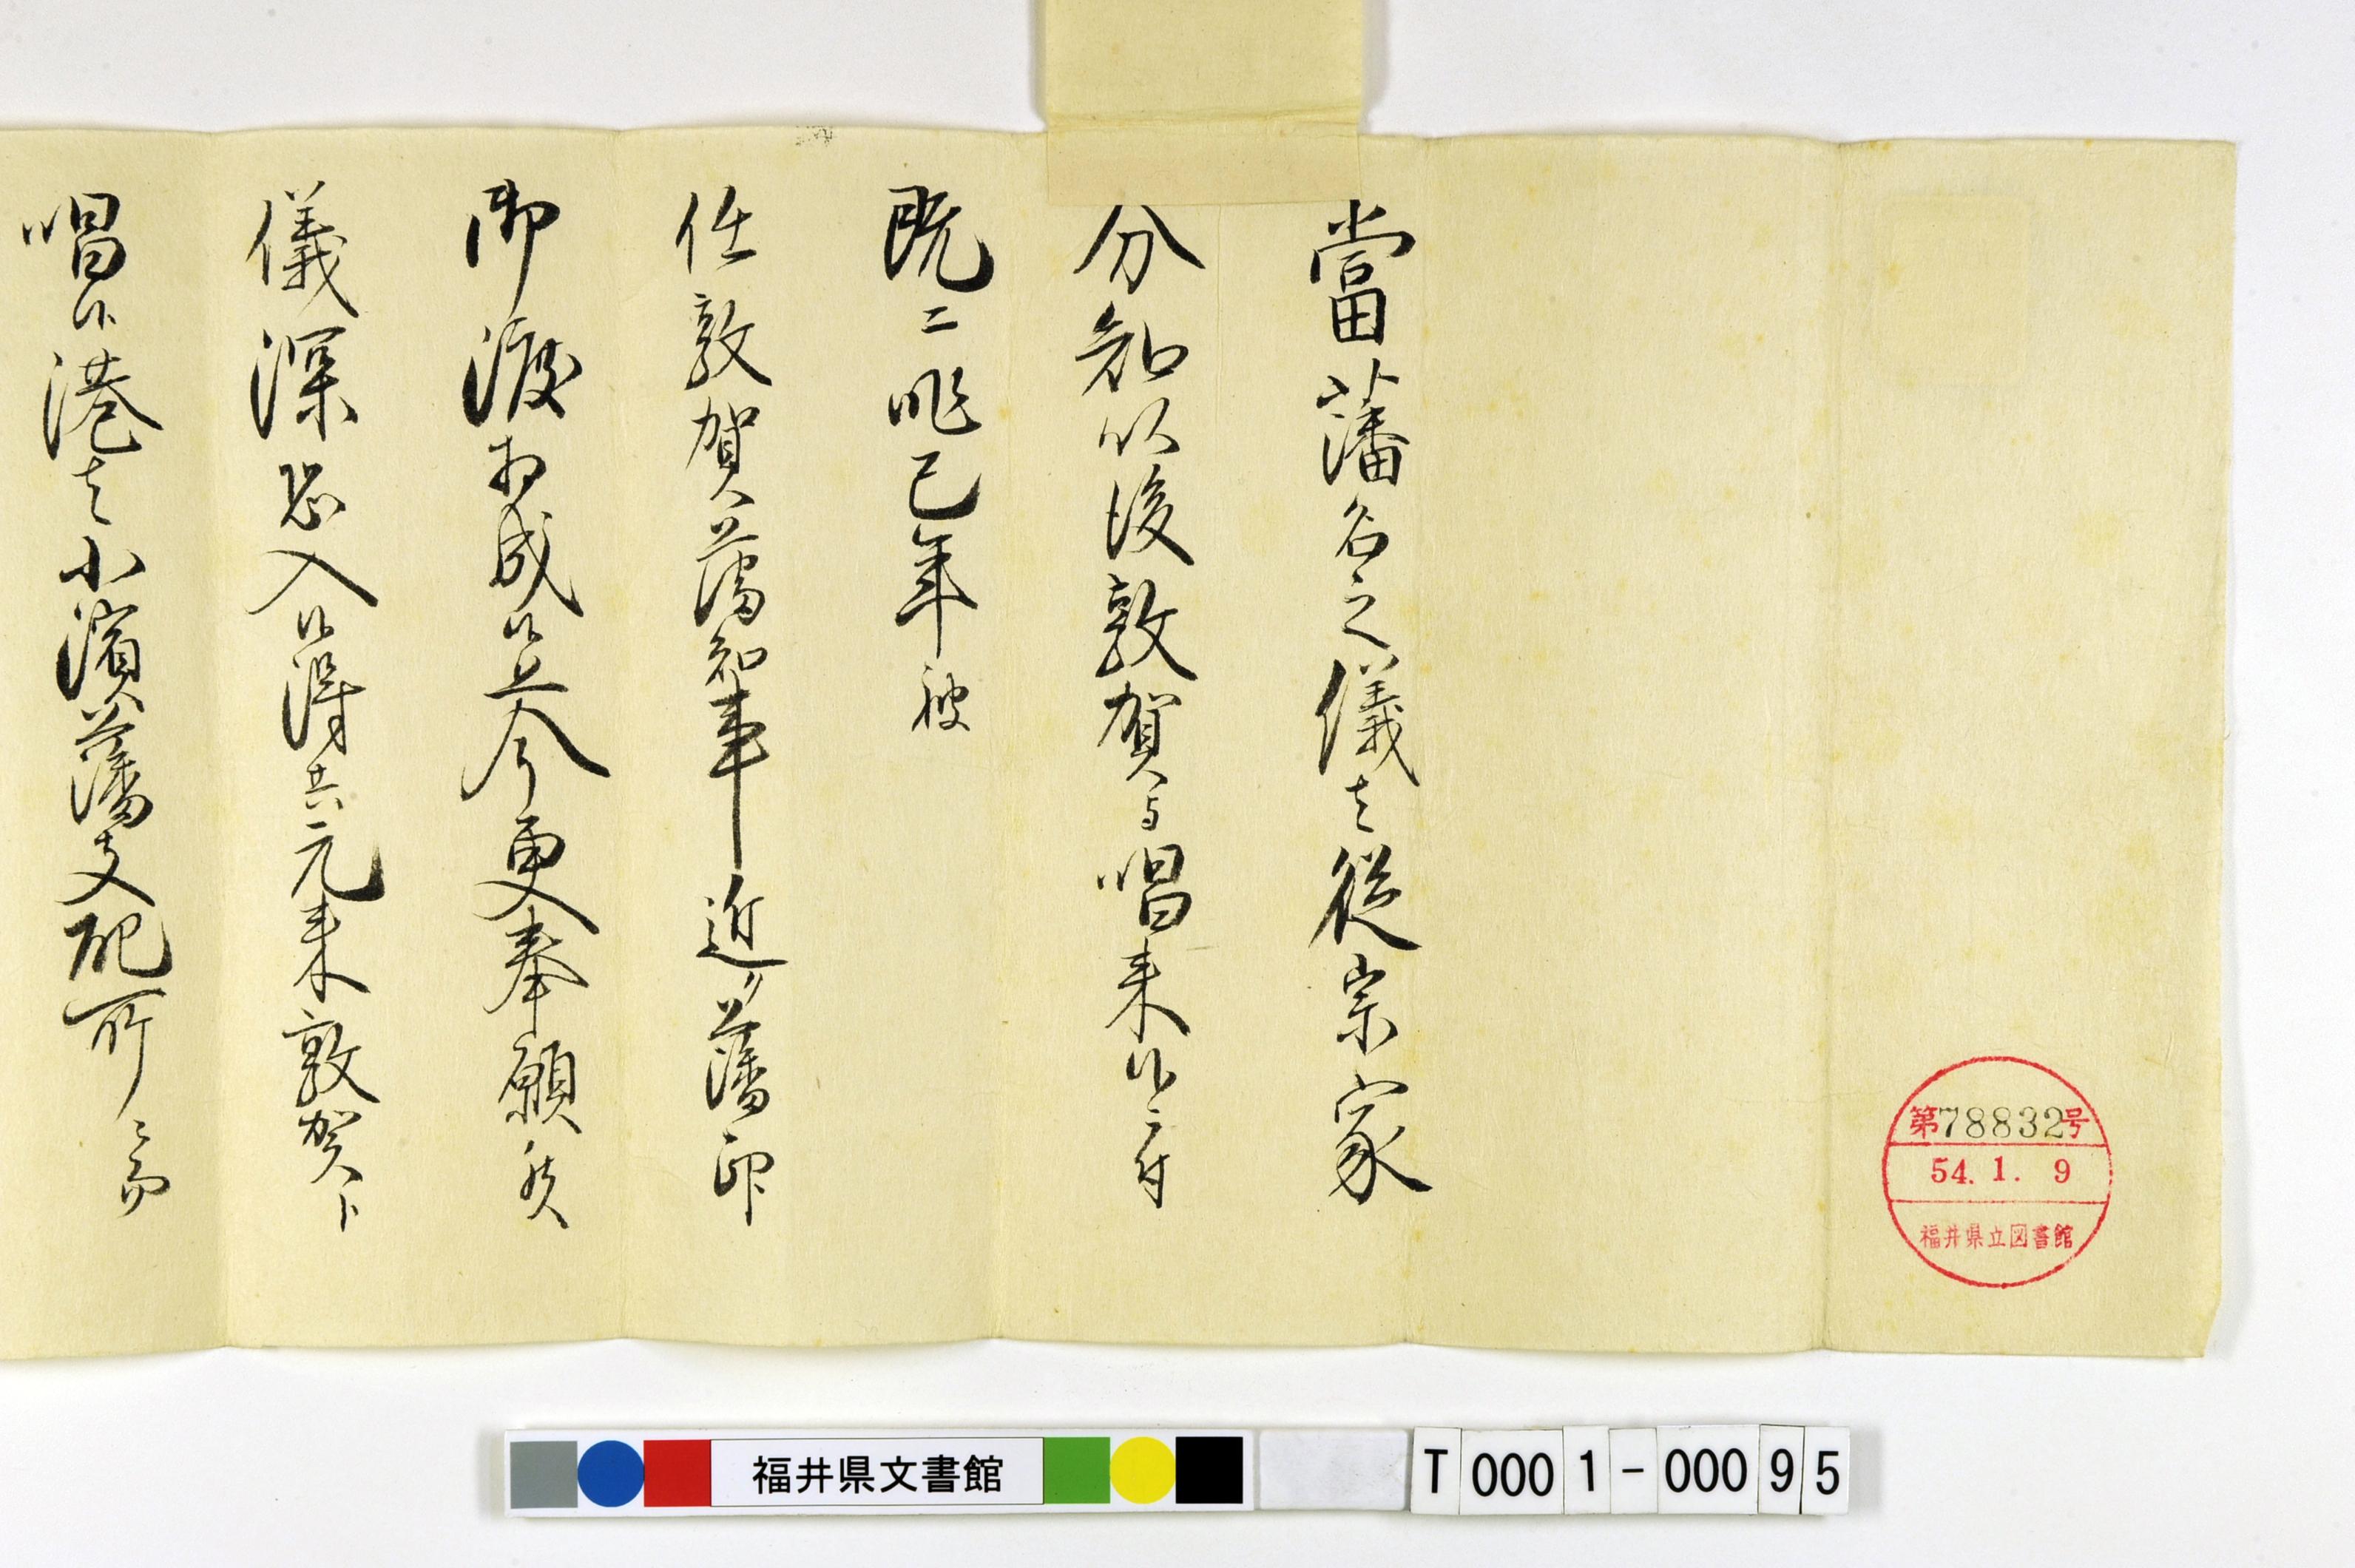 當藩名之儀者従宗家
分知以後敦賀与唱来候ニ付
既ニ昨巳年被
任敦賀藩知事近々藩印
御渡相成候上今更奉願候
儀深恐入候得共元来敦賀ト
唱候港者小濱藩支配所ニ而
第78832号
54. 1. 9
福井県立図書館
福井県文書館
T0001-00095